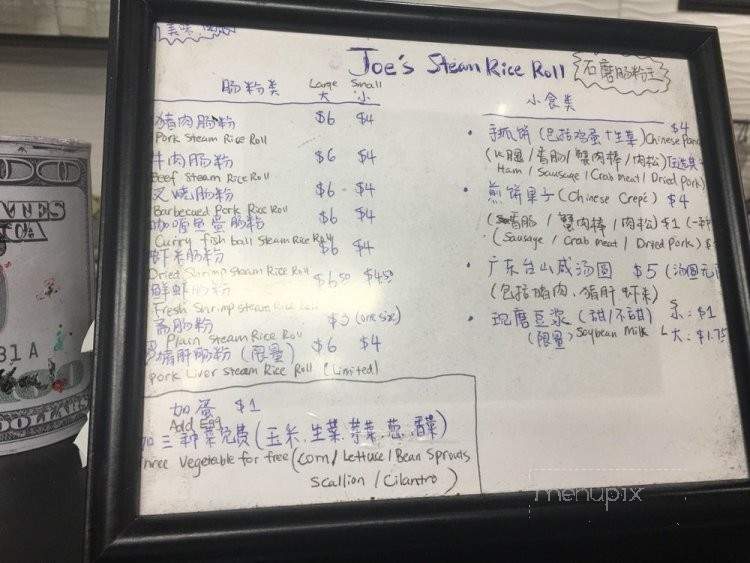 美味
Joe's Steam Rice Roll
石磨肠粉王
肠粉类 Large Small
大 小
猪肉肠粉 $6 $4
Pork Steam Rice Roll
牛肉肠粉 $6 $4
Beef Steam Rice Roll
叉烧肠粉 $6 $4
Barbecued Pork Rice Roll
咖喱鱼蛋肠粉
Curry fish ball Steam Rice Roll $6 $4
虾米肠粉
Dried Shrimp Steam Rice Roll $6.50 $4.50
鲜虾肠粉
Fresh Shrimp Steam Rice Roll
斋肠粉 $3 (one size)
Plain Steam Rice Roll
猪肝肠粉 (限量) $6 $4
Pork Liver Steam Rice Roll (Limited)
加蛋 $1
Add Egg
加三种菜免费 (玉米.生菜.芽菜.葱.香菜)
Three Vegetable for free (Corn / Lettuce / Bean Sprouts
Scallion / Cilantro)
小食类
$4
手抓饼 (包括鸡蛋+生菜) Chinese Panc
(火腿 / 香肠 / 蟹肉棒 / 肉松) 任选其
Ham / Sausage / Crab meat / Dried Pork)
煎饼果子 (Chinese Crepe) $4
(香肠 / 蟹肉棒 / 肉松) $1
(Sausage / Crab meat / Dried Pork) $
广东台山咸汤圆 $5
(包括猪肉、猪肝、虾米)
现磨豆浆 (甜/不甜) 小: $1
(限量) Soybean Milk L 大: $1.75
31 A
menupix